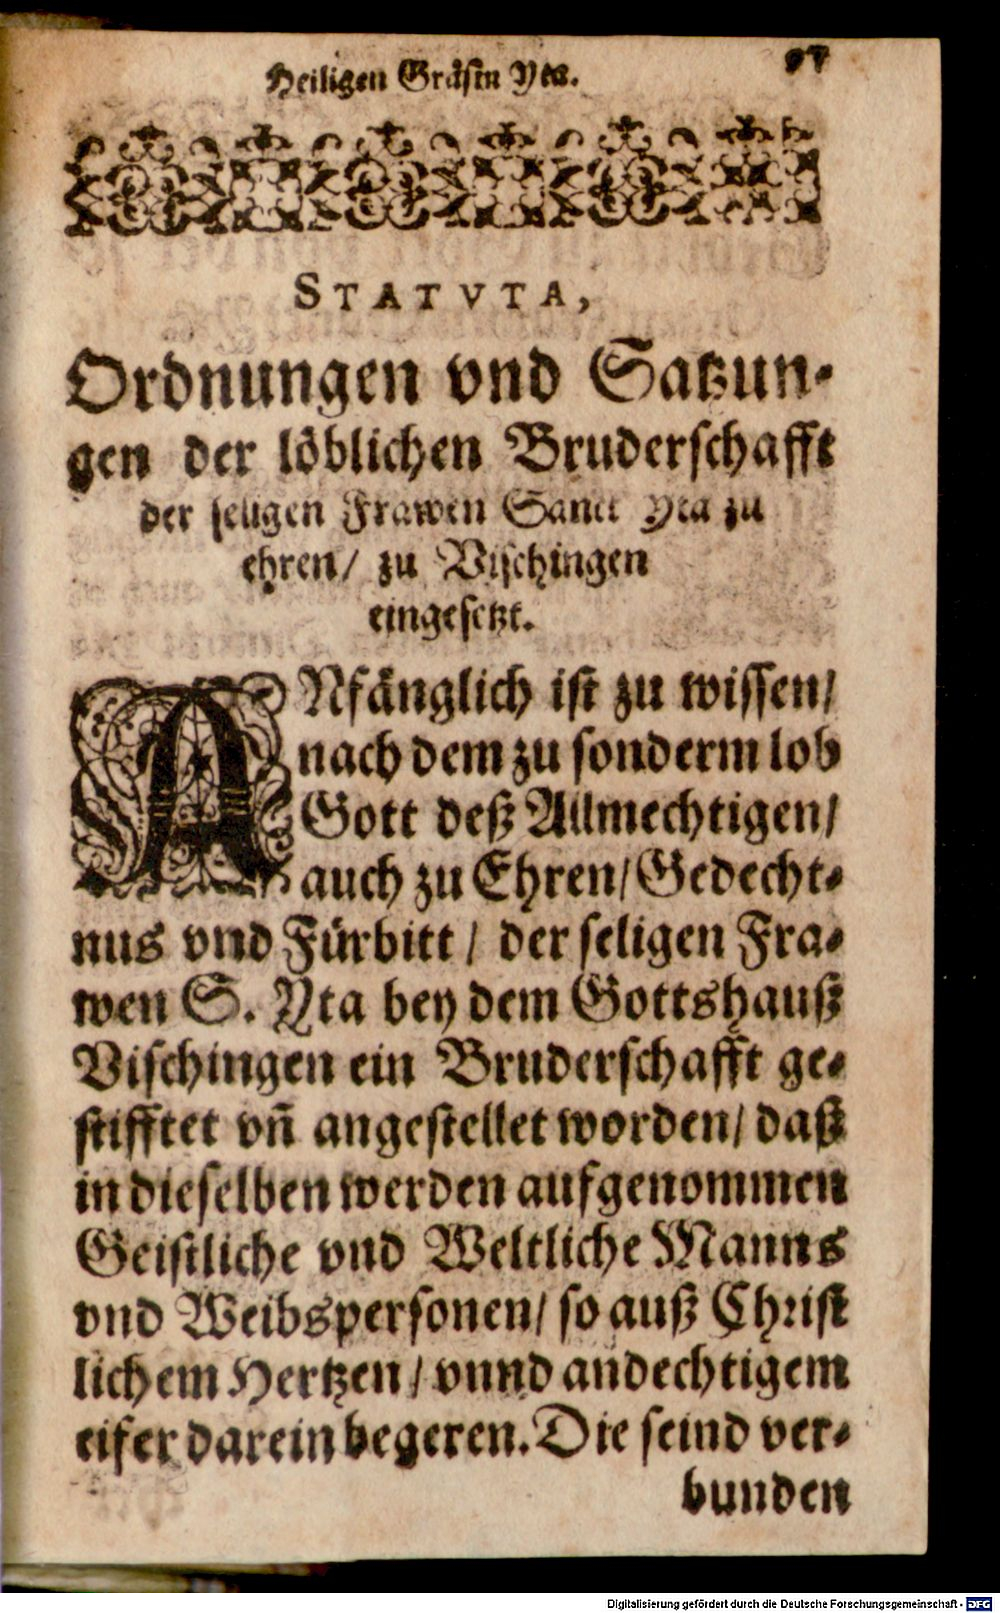 Heiligen Gräfin Yta.
97
STATVTA,
Ordnungen vnd Satzun-
gen der löblichen Bruderschafft
der seligen Frawen Sanct Yta zu
ehren/ zu Vischingen
eingesetzt.
ANfänglich ist zu wissen/
nach dem zu sonderm lob
Gott deß Allmechtigen/
auch zu Ehren/ Gedecht-
nus vnd Fürbitt / der seligen Fra-
wen S. Yta bey dem Gottshauß
Vischingen ein Bruderschafft ge-
stifftet vñ angestellet worden/ daß
in dieselben werden aufgenommen
Geistliche vnd Weltliche Manns
vnd Weibspersonen/ so auß Christ
lichem Hertzen / vnnd andechtigem
eifer darein begeren. Die seind ver-
bunden
Digitalisierung gefördert durch die Deutsche Forschungsgemeinschaft - DFG